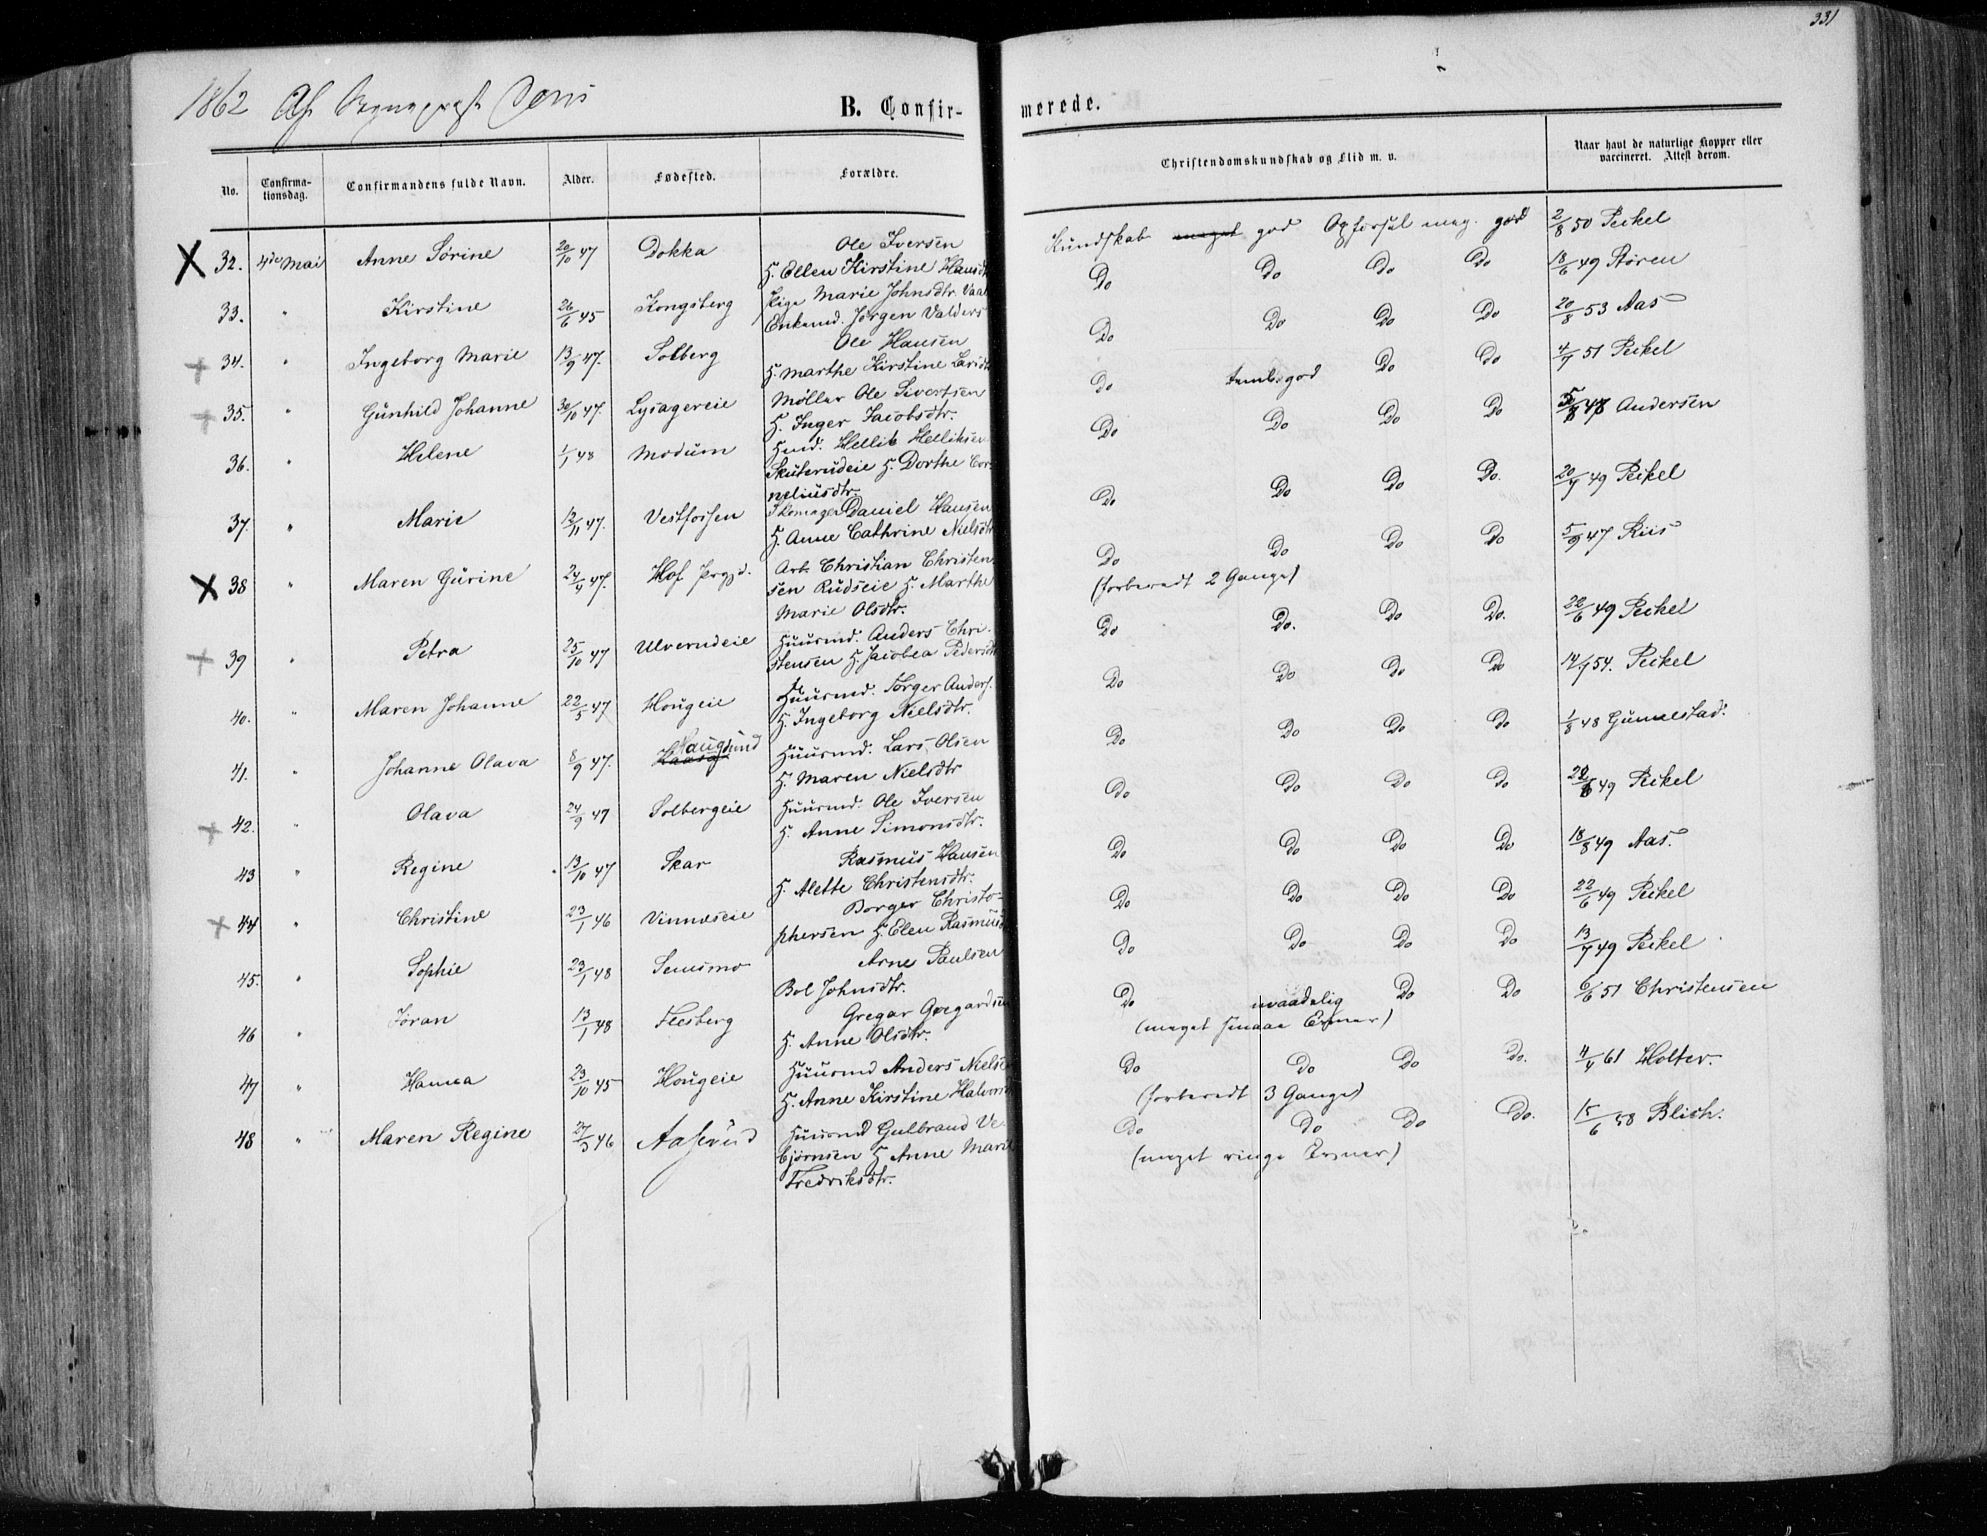 331
1862
B. Confirmerede.
No. Confirmationsdag. Confirmandens fulde Navn. Alder. Fødested. Forældre. Christendomskundskab og Flid m. v. Naar havt de naturlige Kopper eller vaccineret. Attest derom.
32. 4de Mai Anne Sørine 20/10 47 Dokka Ole Iversen Kundskab meget god Opførsel meg. god 2/8 50 Peckel
H. Ellen Kirstine Hansdtr
33. " Kirstine 26/6 45 Kongsberg Pige Marie Johnsdtr. Do Do Do Do 18/6 49 Støren
Enkemd. Jørgen Valders
34. " Ingeborg Marie 13/9 47. Solberg Ole Hansen Do Do Do Do 20/8 53 Aas
H. Marthe Kirstine Larsdtr
35. " Gunhild Johanne 30/10 47. Lysagereie Møller Ole Sivertsen Do temb. god Do Do 4/7 51 Peckel
H. Inger Jacobsdtr.
36. " Helene 1/1 48 Modum Hmd. Hellik Helliksen Do Do Do Do Andersen
Skuterudeie H. Dorthe Cor-
neliusdtr.
37. " Marie 12/11 47. Vestfossen Skomager Daniel Hansen Do Do Do Do. 20/7 49 Peckel
H. Anne Cathrine Nielsdtr
38 " Maren Gurine 24/4 47. Hof Prgjd. Arb. Christian Christen- Do Do Do Do 5/9 47 Riis
sen Rudseie H. Marthe (forberedt 2 Gange)
Marie Olsdtr.
39 " Petra 25/10 47 Ulverudeie Huusmd. Anders Chri- Do Do. Do Do. 22/6 49 Peckel
stensen H. Jacobea Pedersdtr
40. " Maren Johanne 22/5 47 Hougeie Huusmd. Torger Anders. Do Do Do Do 14/7 54. Peckel
H. Ingeborg Nielsdtr.
41. " Johanne Olava 8/9 47. Haugsund Huusmd. Lars Olsen Do Do Do Do 1/8 48
H. Maren Nielsdtr
42. " Olava 24/9 47 Solbergeie Huusmd. Ole Iversen Do Do Do Do 49 Peckel
H. Anne Simonsdtr.
43 " Regine 13/10 47 Skar Rasmus Hansen Do Do Do Do 18/8 49 Aas.
H. Alette Christensdtr.
44 " Christine 23/1 46 Vinnæseie Borger Christo- Do Do Do Do 22/6 49 Peckel
phersen H. Elen Rasmusd
45. " Sophie 23/1 48 Semsmo Arne Paulsen Do Do Do Do 13/7 49 Peckel
Bol Johnsdtr.
46 " Jøran 13/1 48 Flesberg Gregar Gregardsen Do maadelig Do Do 6/6 51 Christensen
H. Anne Olsdtr. (meget smaae Evner)
47 " Hanna 23/10 45 Hougeie Huusmd Anders Nielsen Do Do Do Do. 11/4 61 Holter.
H. Anne Kirstine Halvorsd (forberedt 3 Gange)
48 " Maren Regine 27/3 46 Huusmd Gulbrand Ve- Do Do Do Do. 15/6 58 Blich.
bjørnsen H. Anne Marie (meget ringe Evner)
Fredriksdtr.